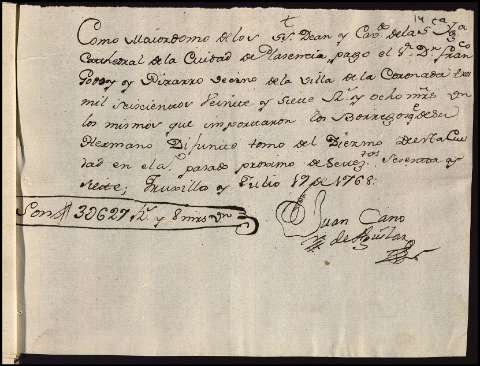 †
Como Mayordomo de los SS. Dean y Cav.do de la S.ta Yg.a
Cathedral de la Ciudad de Plasencia, pago el S.r D.n Fran.co
y Pizarro vecino de la Villa de la Coronada tres
mil seiscientos Veinte y Siete R.s y ocho mrs vn
los mismos que importaron los Borregos q.e de su
Hermano Difunto tomo del Diezmo de esta Ciu
dad en el a.o pasado proximo de Setez.tos Sesenta y
siete; Truxillo y Julio 17 de 1768.
Son 3627 R.s y 8 mrs vn
Juan Cano
de Aguilar